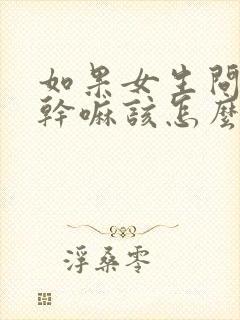 如果女生問
幹嘛該怎麼
浮桑零